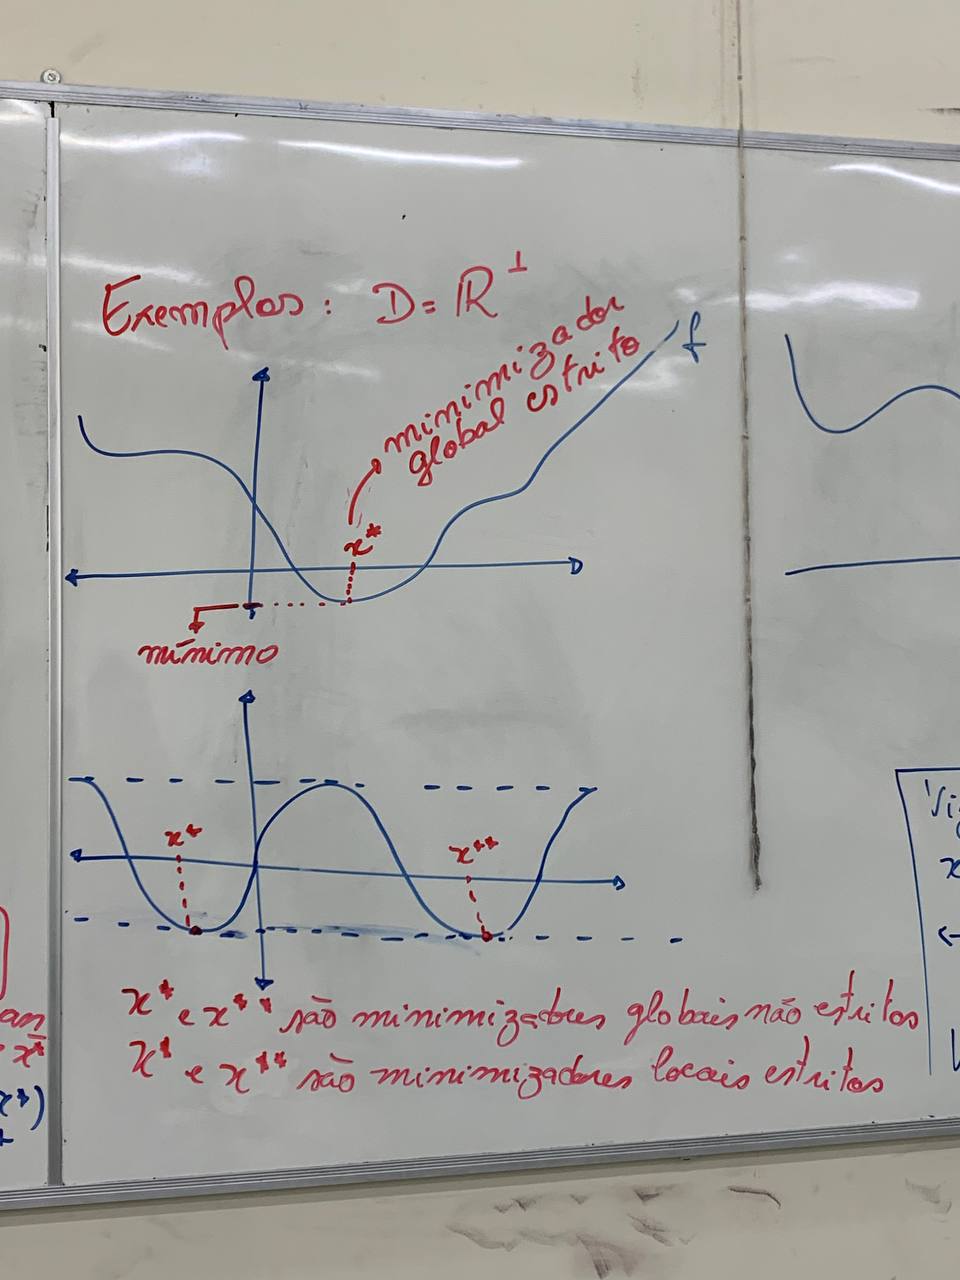 Exemplos: D = ℝ¹
minimizador
global estrito
f
x*
mínimo
x*
x**
x* e x** são minimizadores globais não estritos
x* e x** são minimizadores locais estritos
x*